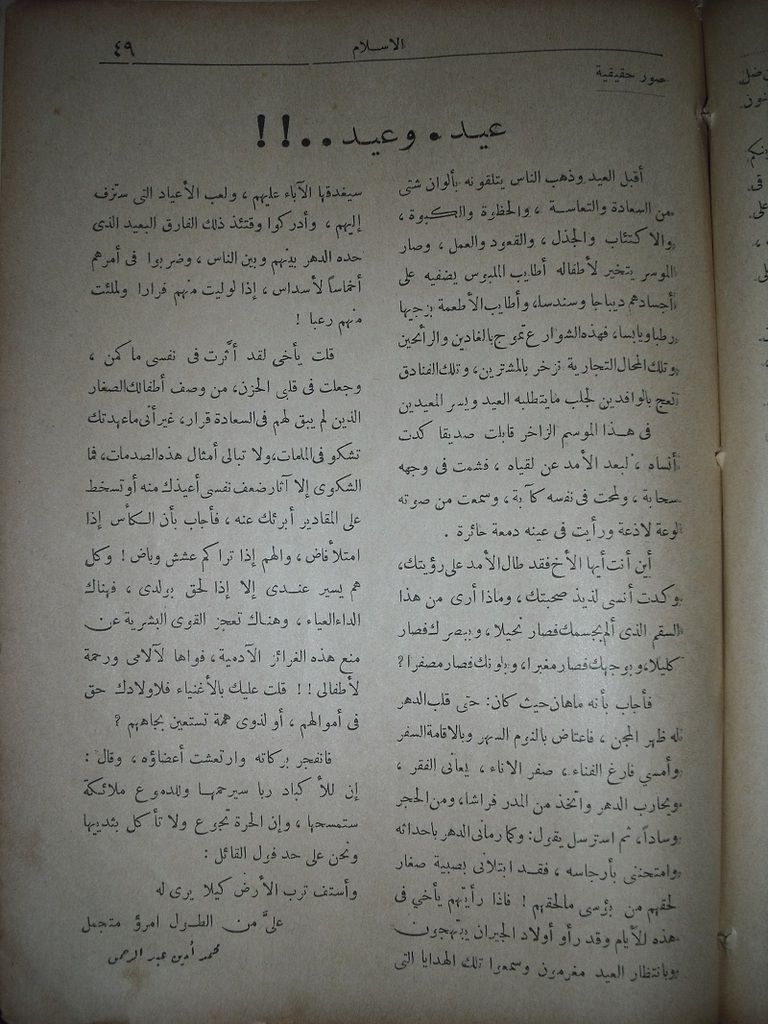 الاسلام
٤٩
صور حقيقية
عيد . وعيد . . !!
أقبل العيد وذهب الناس يتلقونه بألوان شتى
من السعادة والتعاسة ، والحظوة والكبوة ،
والاكتئاب والجذل ، والقعود والعمل ، وصار
الموسر يتخير لأطفاله أطايب الملبوس يضفيه على
أجسادهم ديباجا وسندسا، وأطايب الأطعمة يزجيها
رطبا ويابسا، فهذه الشوارع تموج بالغادين والرائحين
وتلك المحال التجارية تزخر بالمشترين، وتلك الفنادق
تعج بالوافدين لجلب ما يتطلبه العيد ويسر المعيدين
فى هذا الموسم الزاخر قابلت صديقا كدت
أنساه ، لبعد الأمد عن لقياه ، فشمت فى وجهه
سحابة ، ولمحت فى نفسه كآبة ، وسمعت من صوته
لوعة لاذعة ورأيت فى عينه دمعة حائرة .
أين أنت أيها الأخ فقد طال الأمد على رؤيتك،
وكدت أنسى لذيذ صحبتك ، وماذا أرى من هذا
السقم الذى ألم بجسمك فصار نحيلا ، وببصرك فصار
كليلا، وبوجهك فصار مغبرا، وبلونك فصار مصفرا ؟
فأجاب بأنه ماهان حيث كان: حتى قلب الدهر
له ظهر المجن ، فاعتاض بالنوم السهر وبالاقامة السفر
وأمسى فارغ الفناء ، صفر الاناء ، يعانى الفقر ،
ويحارب الدهر واتخذ من المدر فراشا، ومن الحجر
وسادا، ثم استرسل يقول: وكما رمانى الدهر باحداثه
وامتحننى بأرجاسه ، فقد ابتلانى بصبية صغار
لحقهم من بؤسى مالحقهم ! فاذا رأيتهم يأخى فى
هذه الأيام وقد رأو أولاد الجيران يبتهجون
وبانتظار العيد مغرمون وسمعوا تلك الهدايا التى
سيغدقها الآباء عليهم ، ولعب الأعياد التى ستزف
إليهم ، وأدركوا وقتئذ ذلك الفارق البعيد الذى
حده الدهر بينهم وبين الناس ، وضربوا فى أمرهم
أخماسا لأسداس ، إذا لوليت منهم فرارا ولملئت
منهم رعبا !
قلت يأخى لقد أثّرت فى نفسى ما كمن ،
وجعلت فى قلبى الحزن، من وصف أطفالك الصغار
الذين لم يبق لهم فى السعادة قرار، غير أنى ماعهدتك
تشكو فى الملمات، ولا تبالى أمثال هذه الصدمات، فما
الشكوى إلا آثار ضعف نفسى أعيذك منه أو تسخط
على المقادير أبرئك عنه ، فأجاب بأن الكأس إذا
امتلأ فاض ، والهم إذا تراكم عشش وباض ! وكل
هم يسير عندى إلا إذا لحق بولدى ، فهناك
الداء العياء ، وهناك تعجز القوى البشرية عن
منع هذه الغرائز الآدمية ، فواها لآلامى ورحمة
لأطفالى ! ! قلت عليك بالأغنياء فلاولادك حق
فى أموالهم ، أو لذوى همة تستعين بجاههم ؟
فانفجر بركانه وارتعشت أعضاؤه ، وقال :
إن للأكباد ربا سيرحمها وللدموع ملائكة
ستمسحها ، وإن الحرة تجوع ولا تأكل بثدييها
ونحن على حد قول القائل :
وأستف ترب الأرض كيلا يرى له
علىَّ من الطول امرؤ متجمل
محمد أمين عبد الرحمن